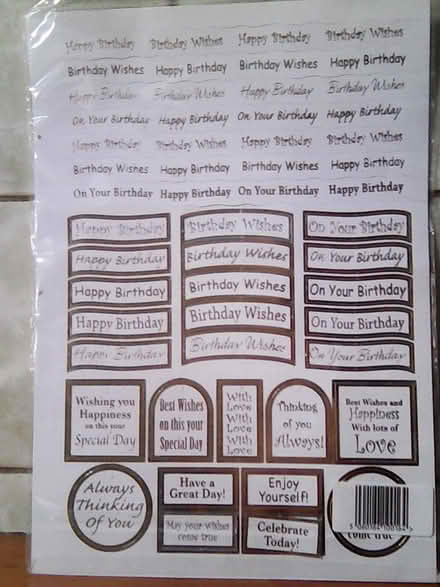 Happy Birthday Birthday Wishes Happy Birthday Birthday Wishes
Birthday Wishes Happy Birthday Birthday Wishes Happy Birthday
Happy Birthday Birthday Wishes Happy Birthday Birthday Wishes
On Your Birthday Happy Birthday On Your Birthday Happy Birthday
Happy Birthday Birthday Wishes Happy Birthday Birthday Wishes
Birthday Wishes Happy Birthday Birthday Wishes Happy Birthday
On Your Birthday Happy Birthday On Your Birthday Happy Birthday
Happy Birthday Birthday Wishes On Your Birthday
Happy Birthday Birthday Wishes On Your Birthday
Happy Birthday Birthday Wishes On Your Birthday
Happy Birthday Birthday Wishes On Your Birthday
Happy Birthday Birthday Wishes On Your Birthday
Wishing you
Happiness
on this your
Special Day
Best Wishes
on this your
Special Day
With
Love
With
Love
With
Love
Thinking
of you
Always!
Best Wishes and
Happiness
With lots of
Love
Always
Thinking
Of You
Have a
Great Day!
Enjoy
Yourself!
May your wishes
come true
Celebrate
Today!
come true